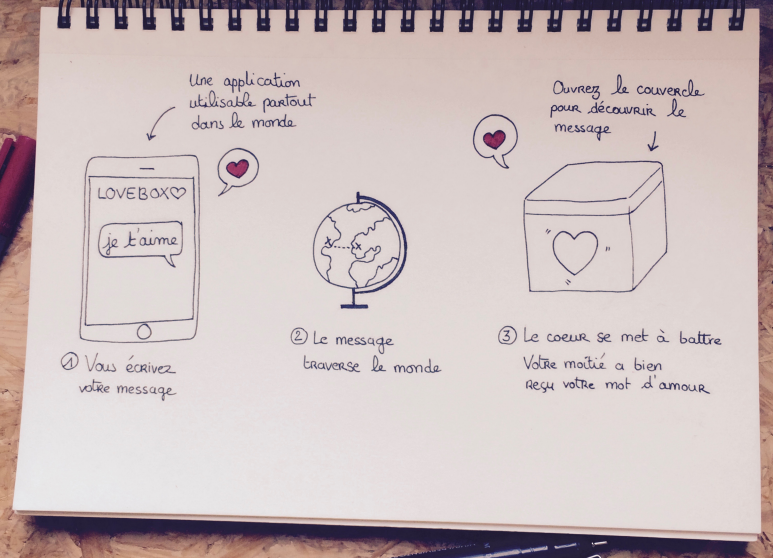 Une application
utilisable partout
dans le monde
LOVEBOX♡
je t'aime
① Vous écrivez
votre message
② Le message
traverse le monde
Ouvrez le couvercle
pour découvrir le
message
③ Le coeur se met à battre
Votre moitié a bien
reçu votre mot d'amour